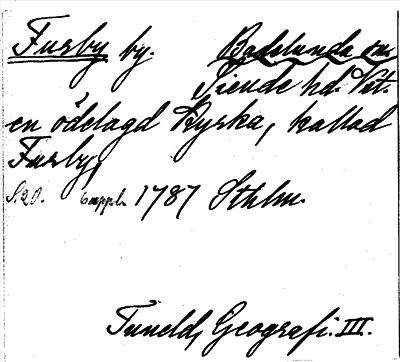 Furby by. Badelunda sn
Siende hd. Vst.
en ödelagd Kyrka, kallad
Furby,
S. 20. 6 uppl. 1787 Sthlm.
Tuneld, Geografi. III.